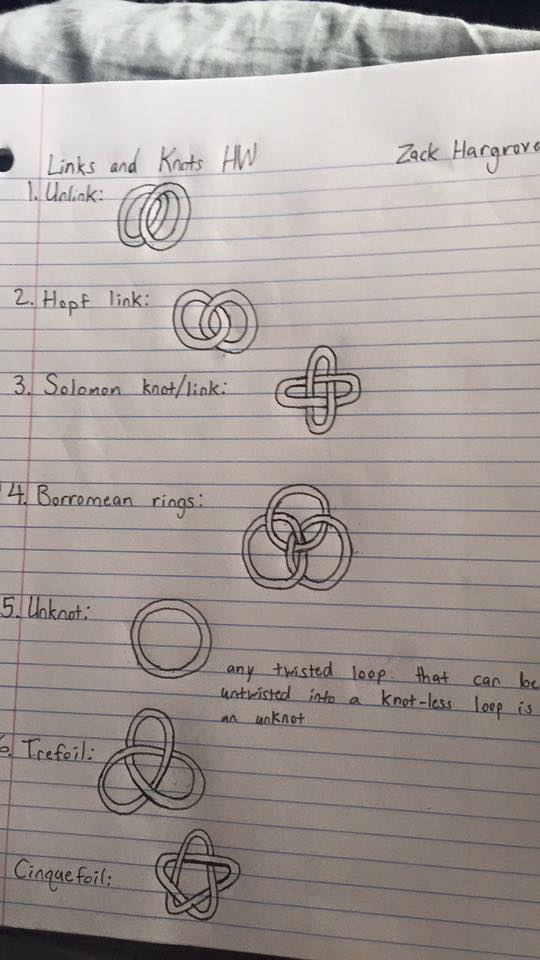 Links and Knots HW Zack Hargrove
1. Unlink:
2. Hopf link:
3. Solomon knot/link:
4. Borromean rings:
5. Unknot:
any twisted loop that can be
untwisted into a knot-less loop is
an unknot
6. Trefoil:
Cinquefoil: